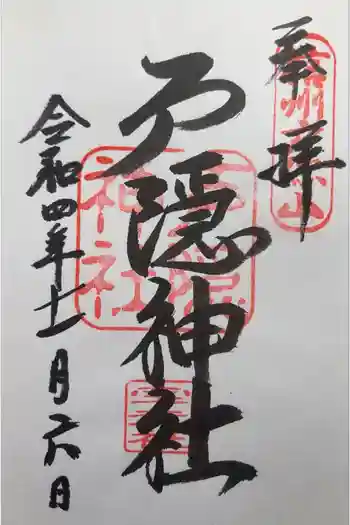 奉拝
戸隠神社
令和四年十一月二六日